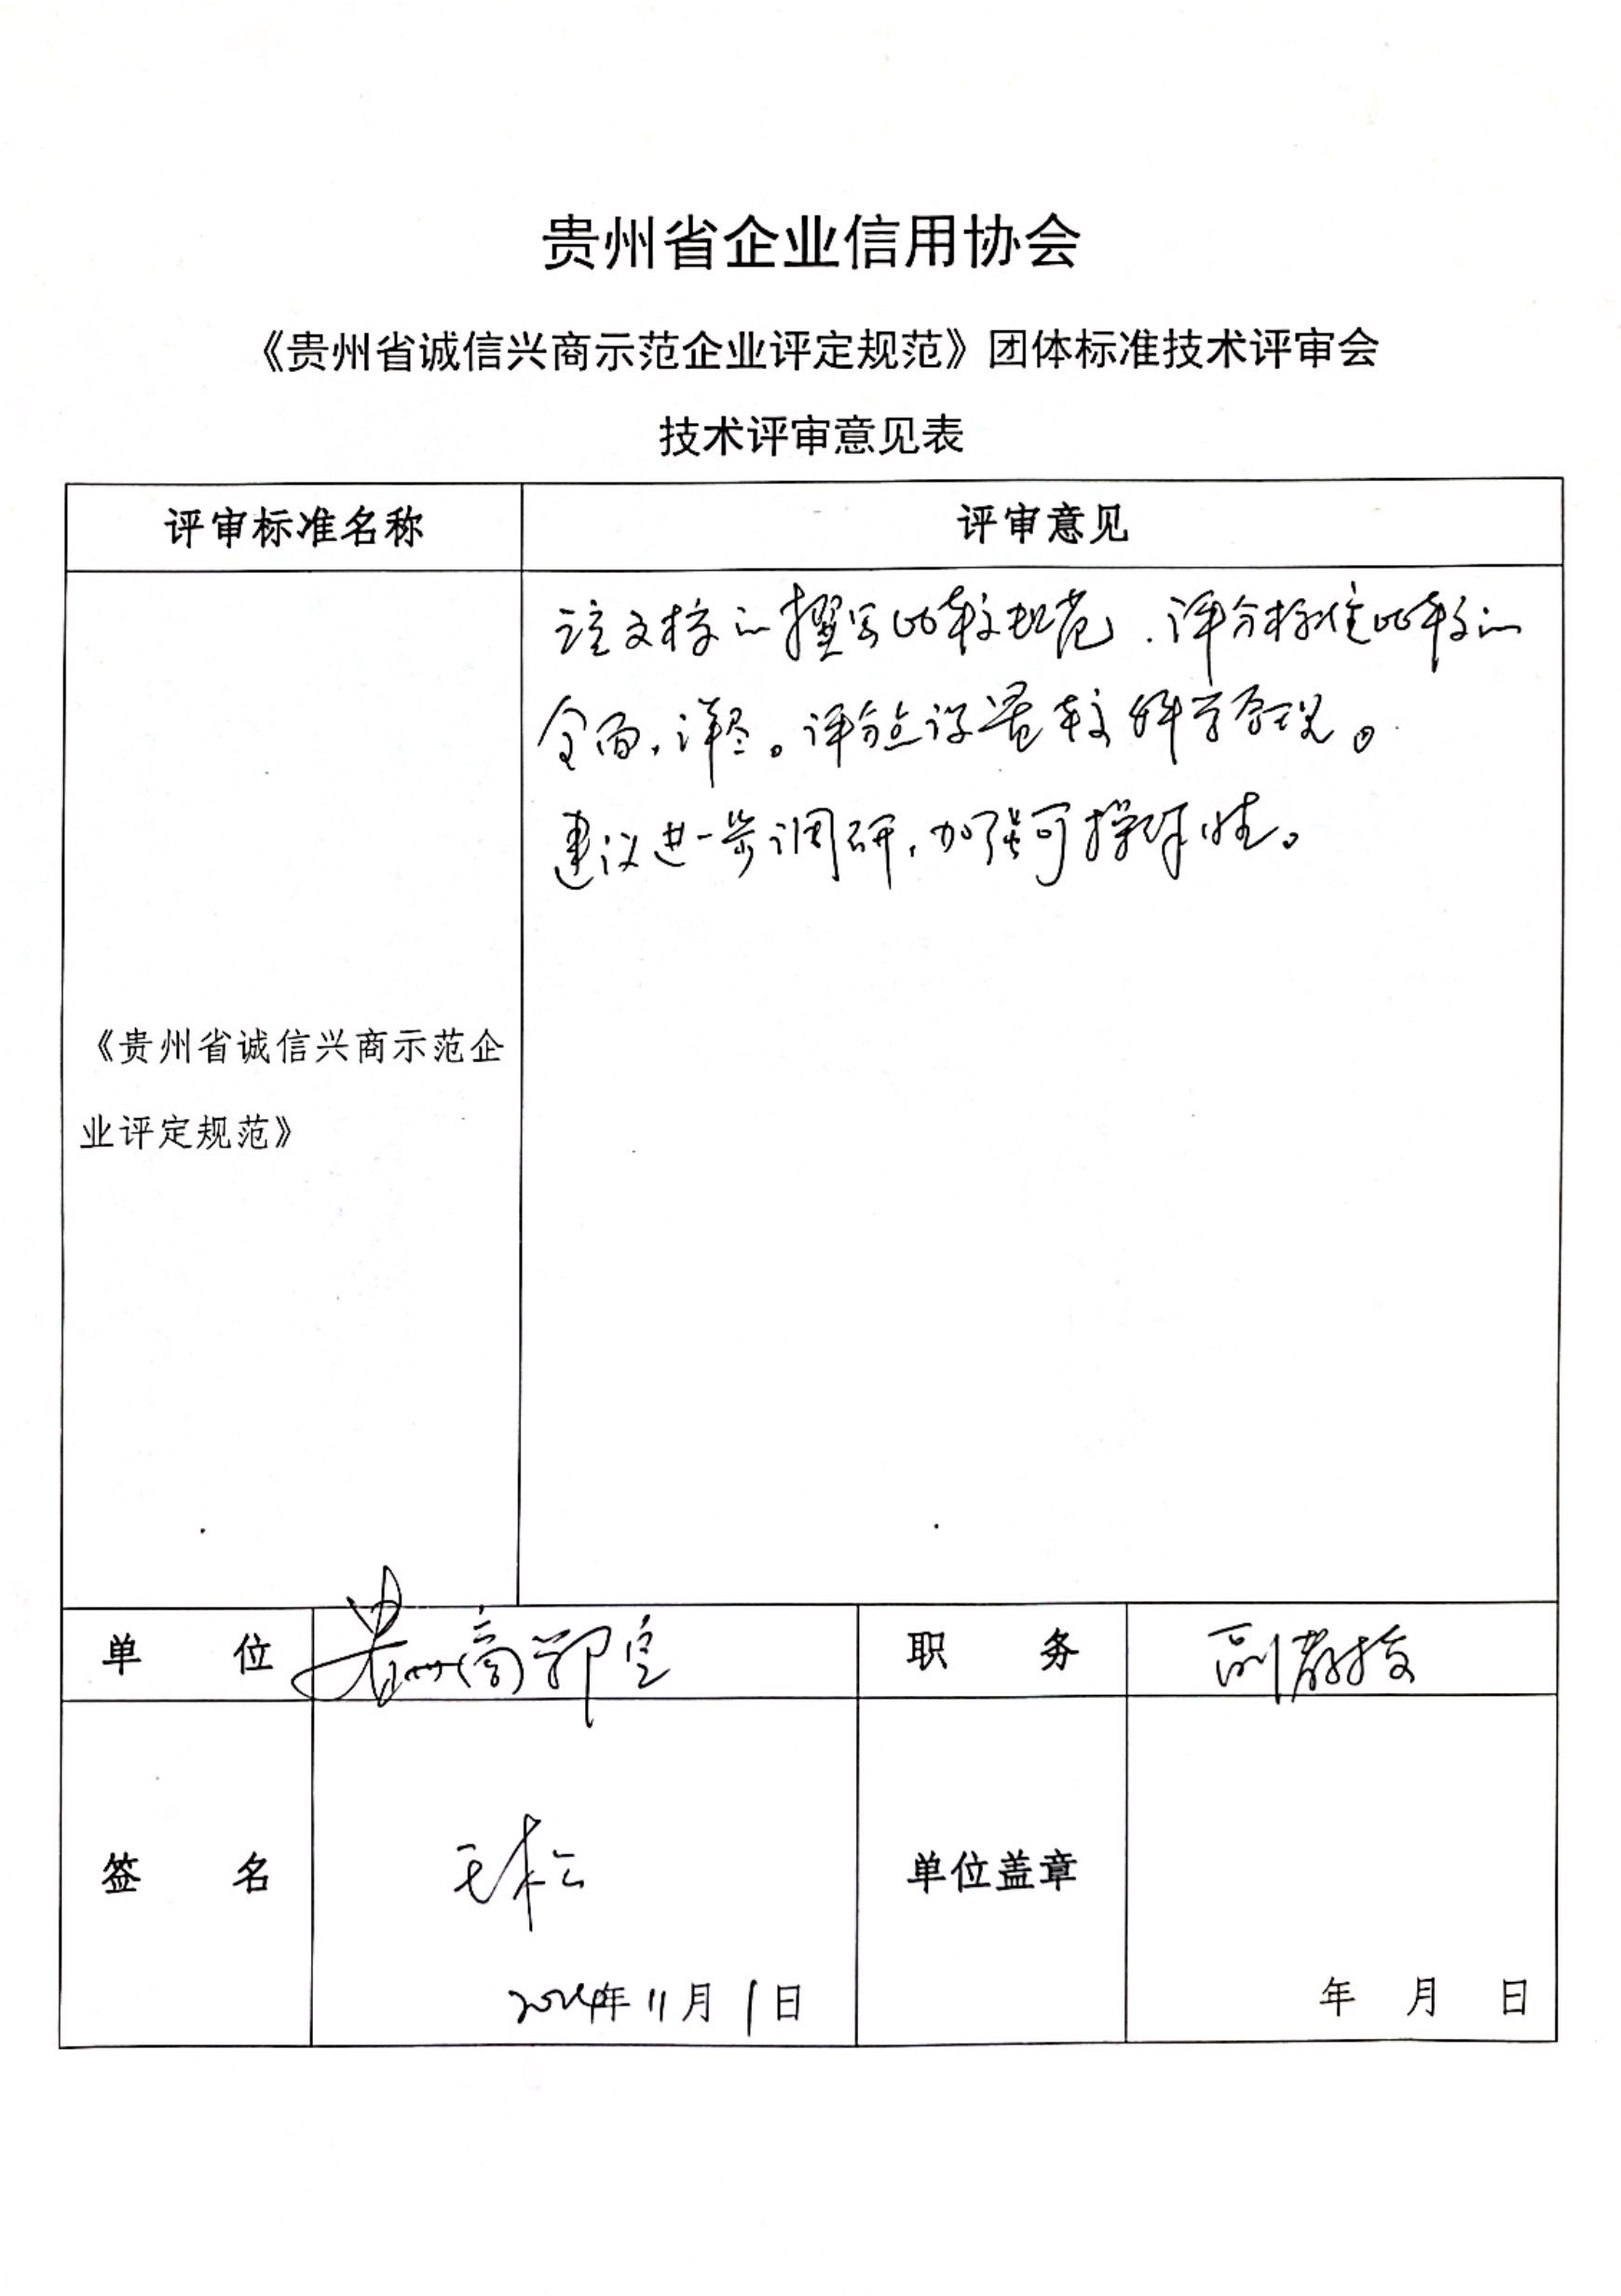 贵州省企业信用协会
《贵州省诚信兴商示范企业评定规范》团体标准技术评审会
技术评审意见表
评审标准名称 评审意见
该文稿的撰写比较规范，评分标准比较的
全面，详尽。评分点设置较科学合理。
建议进一步调研，加强可操作性。
《贵州省诚信兴商示范企
业评定规范》
单 位 贵州商学院 职 务 副教授
签 名 单位盖章
2024年11月1日 年 月 日